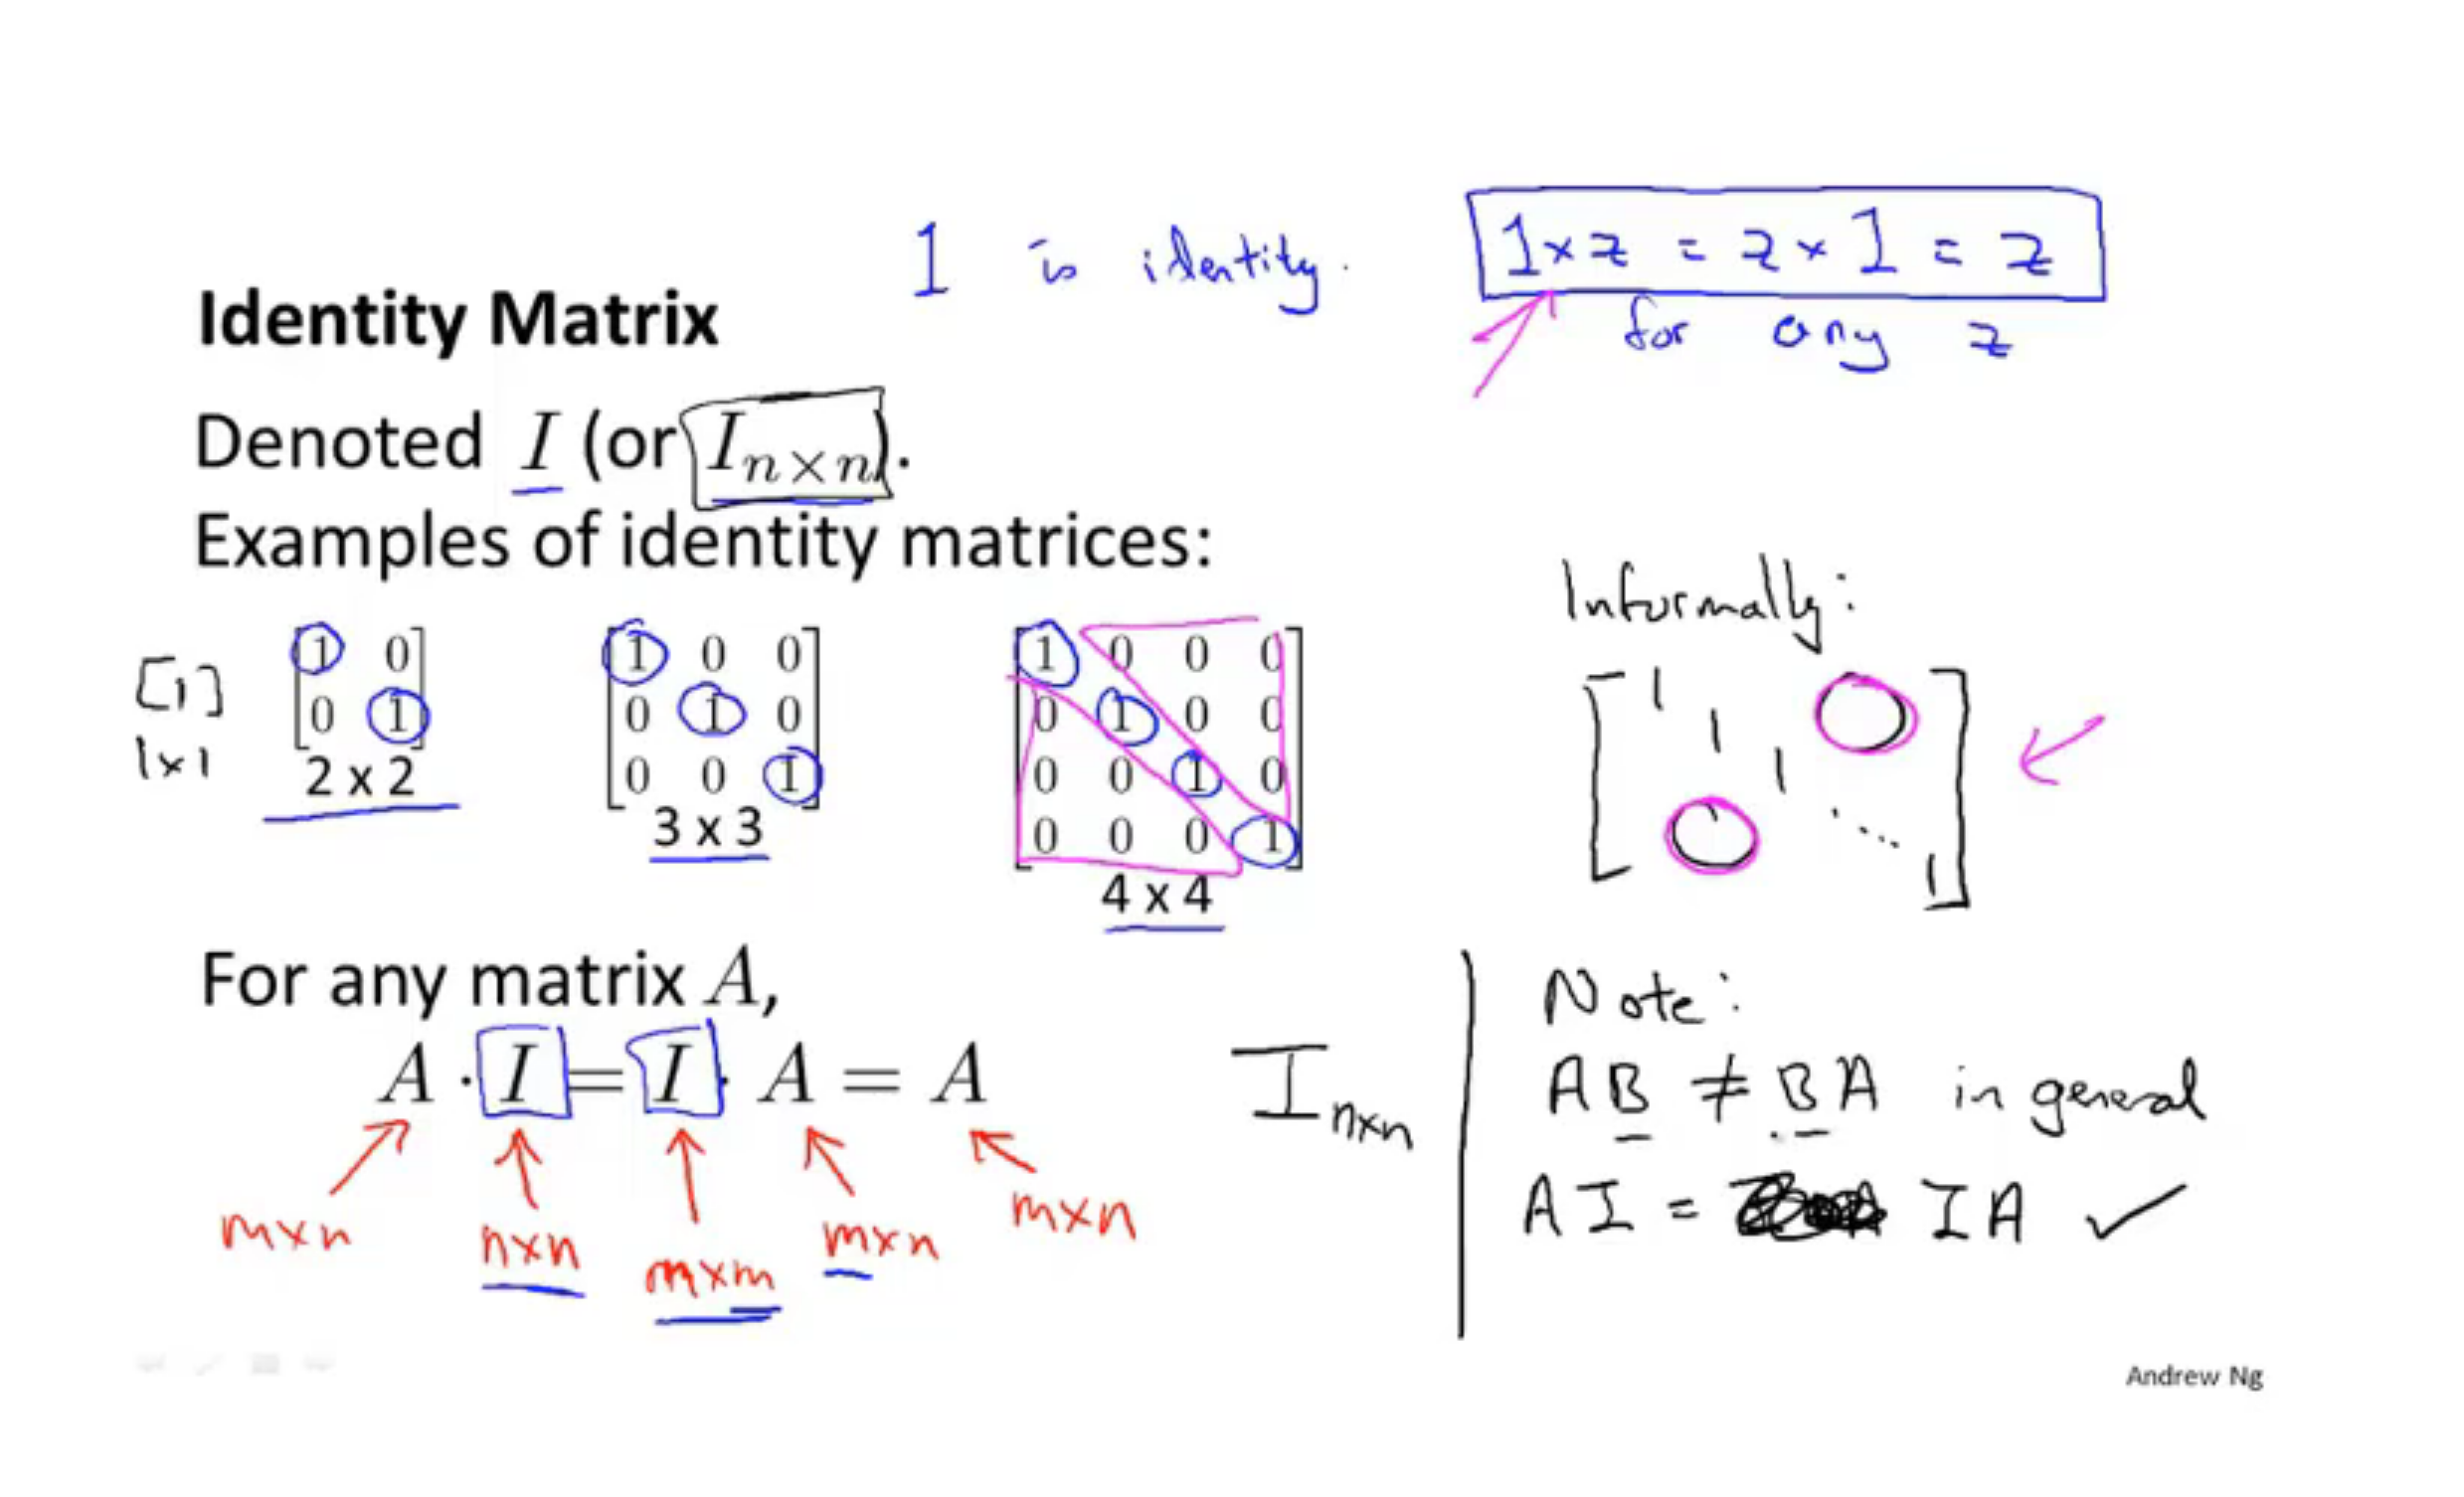 1 is identity.
1 × z = z × 1 = z
for any z
Identity Matrix
Denoted I (or I_{n×n}).
Examples of identity matrices:
[1]
1x1
1 0
0 1
2 x 2
1 0 0
0 1 0
0 0 1
3 x 3
1 0 0 0
0 1 0 0
0 0 1 0
0 0 0 1
4 x 4
Informally:
1
1
1
1
For any matrix A,
A · I = I · A = A
m×n n×n m×m m×n m×n
I_{n×n}
Note:
AB ≠ BA in general
AI = IA ✓
Andrew Ng